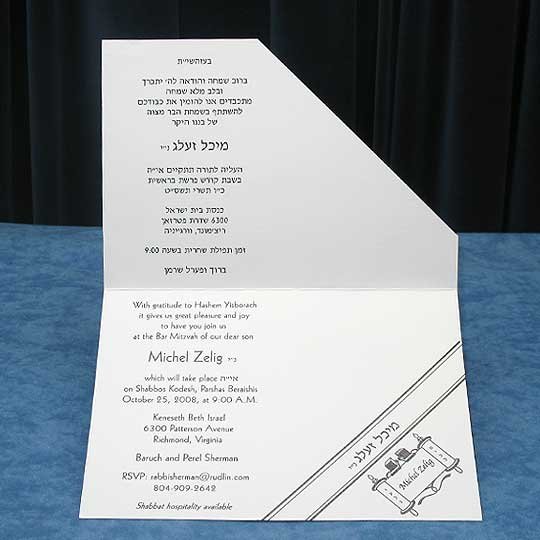 בעזהשי״ת
ברוב שמחה והודאה לה׳ יתברך
ובלב מלא שמחה
מתכבדים אנו להזמין את כבודכם
להשתתף בשמחת הבר מצוה
של בננו היקר
מיכל זעלג ני״ו
העליה לתורה תתקיים אי״ה
בשבת קודש פרשת בראשית
כ״ו תשרי תשס״ט
כנסת בית ישראל
6300 שדרת פטרסאן
ריצימונד, ווירגייניה
זמן תפילת שחרית בשעה 9:00
ברוך ופערל שרמן
With gratitude to Hashem Yisborach
it gives us great pleasure and joy
to have you join us
at the Bar Mitzvah of our dear son
Michel Zelig ני״ו
which will take place אי״ה
on Shabbos Kodesh, Parshas Beraishis
October 25, 2008, at 9:00 A.M.
Keneseth Beth Israel
6300 Patterson Avenue
Richmond, Virginia
Baruch and Perel Sherman
RSVP: rabbisherman@rudlin.com
804-909-2642
Shabbat hospitality available
מיכל זעלג ני״ו
Michel Zelig